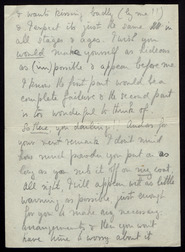 & wants kissing badly (by me!!)
& I expect it's just the same in
all stages & ages. I wish you
would make yourself as hideous
as (im)possible & appear before me
I know the first part would be a
complete failure & the second part
is too wonderful to think of
So there you darling
your next remark. I don't mind
how much powder you put on as
long as you rub it off on my coat
All right, I will appear with as little
warning as possible, just enough
for you to make any necessary
arrangements & then you won't
have time to worry about it